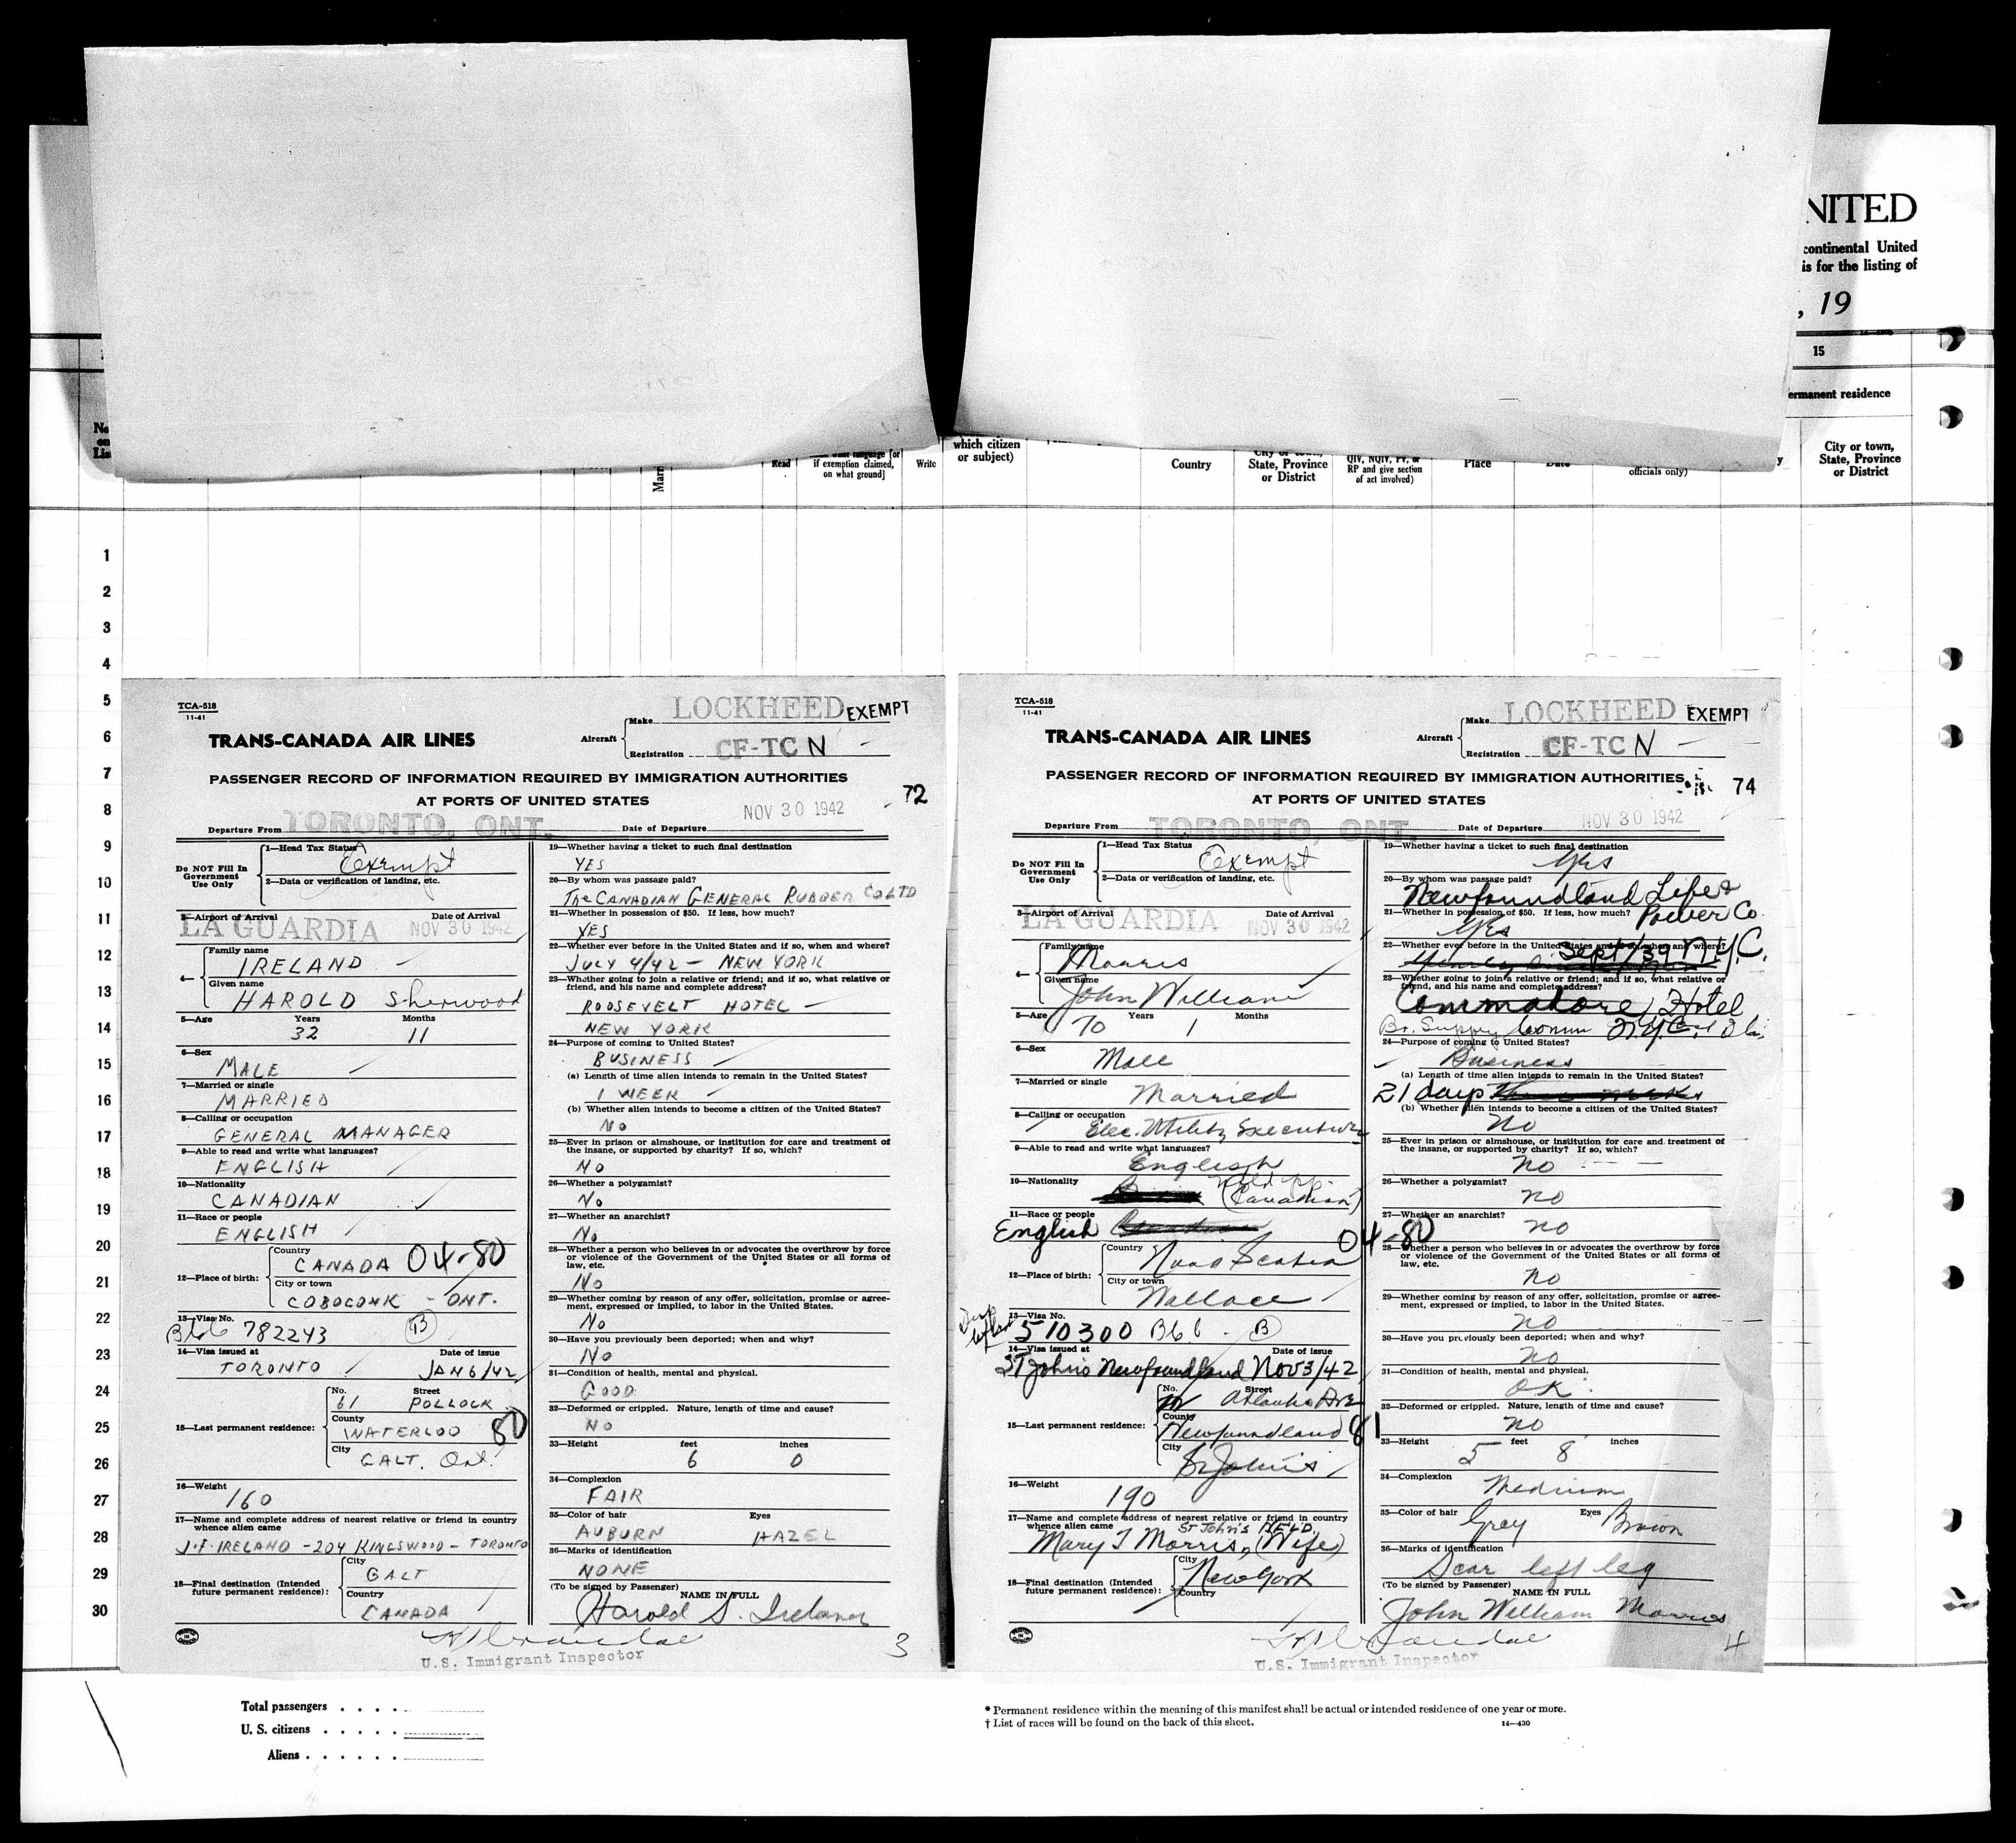 NITED
continental United
is for the listing of
, 19
15
ermanent residence
No.
on
Lis
Read
if exemption claimed,
on what ground]
Write
which citizen
or subject)
Country
State, Province
or District
QIV, NQIV, PV, or
RP and give section
of act involved)
Place
Date
officials only)
City or town,
State, Province
or District
1
2
3
4
5
6
7
8
9
10
11
12
13
14
15
16
17
18
19
20
21
22
23
24
25
26
27
28
29
30
TCA-518
11-41
Make LOCKHEED EXEMPT
TRANS-CANADA AIR LINES
Aircraft
Registration CF-TC N -
PASSENGER RECORD OF INFORMATION REQUIRED BY IMMIGRATION AUTHORITIES
AT PORTS OF UNITED STATES
72
Departure From TORONTO, ONT. Date of Departure NOV 30 1942
Do NOT Fill In
Government
Use Only
1—Head Tax Status
Exempt
2—Data or verification of landing, etc.
3—Airport of Arrival Date of Arrival
LA GUARDIA NOV 30 1942
4—
Family name
IRELAND
Given name
HAROLD Sherwood
5—Age Years Months
32 11
6—Sex
MALE
7—Married or single
MARRIED
8—Calling or occupation
GENERAL MANAGER
9—Able to read and write what languages?
ENGLISH
10—Nationality
CANADIAN
11—Race or people
ENGLISH
12—Place of birth:
Country
CANADA 04-80
City or town
COBOCONK - ONT.
13—Visa No.
B66 782243 B
14—Visa issued at Date of issue
TORONTO JAN 6/42
15—Last permanent residence:
No. Street
61 POLLOCK
County
WATERLOO 80
City
GALT. Ont.
16—Weight
160
17—Name and complete address of nearest relative or friend in country
whence alien came
J.F. IRELAND - 204 KINGSWOOD - TORONTO
18—Final destination (Intended
future permanent residence):
City
GALT
Country
CANADA
19—Whether having a ticket to such final destination
YES
20—By whom was passage paid?
The CANADIAN GENERAL RUBBER CO LTD
21—Whether in possession of $50. If less, how much?
YES
22—Whether ever before in the United States and if so, when and where?
JULY 4/42 - NEW YORK
23—Whether going to join a relative or friend; and if so, what relative or
friend, and his name and complete address?
ROOSEVELT HOTEL -
NEW YORK
24—Purpose of coming to United States?
BUSINESS
(a) Length of time alien intends to remain in the United States?
1 WEEK
(b) Whether alien intends to become a citizen of the United States?
No
25—Ever in prison or almshouse, or institution for care and treatment of
the insane, or supported by charity? If so, which?
No
26—Whether a polygamist?
No
27—Whether an anarchist?
No
28—Whether a person who believes in or advocates the overthrow by force
or violence of the Government of the United States or all forms of
law, etc.
No
29—Whether coming by reason of any offer, solicitation, promise or agree-
ment, expressed or implied, to labor in the United States.
No
30—Have you previously been deported; when and why?
No
31—Condition of health, mental and physical.
GOOD
32—Deformed or crippled. Nature, length of time and cause?
NO
33—Height feet inches
6 0
34—Complexion
FAIR
35—Color of hair Eyes
AUBURN HAZEL
36—Marks of identification
NONE
(To be signed by Passenger) NAME IN FULL
Harold S. Ireland
U.S. Immigrant Inspector
3
TCA-518
11-41
Make LOCKHEED EXEMPT
TRANS-CANADA AIR LINES
Aircraft
Registration CF-TC N -
PASSENGER RECORD OF INFORMATION REQUIRED BY IMMIGRATION AUTHORITIES
AT PORTS OF UNITED STATES
74
Departure From TORONTO, ONT. Date of Departure NOV 30 1942
Do NOT Fill In
Government
Use Only
1—Head Tax Status
Exempt
2—Data or verification of landing, etc.
3—Airport of Arrival Date of Arrival
LA GUARDIA NOV 30 1942
4—
Family name
Morris
Given name
John William
5—Age Years Months
70 1
6—Sex
Male
7—Married or single
Married
8—Calling or occupation
Elec. Utility Executive
9—Able to read and write what languages?
English
10—Nationality
(Canadian)
11—Race or people
English
04-80
12—Place of birth:
Country
Nova Scotia
City or town
Wallace
13—Visa No.
510300 B66 B
14—Visa issued at Date of issue
ST John's Newfoundland Nov 3/42
15—Last permanent residence:
No. Street
Atlantic Ave
County
Newfoundland 81
City
St John's
16—Weight
190
17—Name and complete address of nearest relative or friend in country
whence alien came St John's NFLD.
Mary T Morris, (Wife)
18—Final destination (Intended
future permanent residence):
City
New York
Country
19—Whether having a ticket to such final destination
Yes
20—By whom was passage paid?
Newfoundland Life &
21—Whether in possession of $50. If less, how much? Power Co.
Yes
22—Whether ever before in the United States and if so, when and where?
Sept/39 N.Y.C.
23—Whether going to join a relative or friend; and if so, what relative or
friend, and his name and complete address?
Commadore Hotel
Br. Supply Comm N.Y.C.
24—Purpose of coming to United States?
Business
(a) Length of time alien intends to remain in the United States?
21 days
(b) Whether alien intends to become a citizen of the United States?
No
25—Ever in prison or almshouse, or institution for care and treatment of
the insane, or supported by charity? If so, which?
no
26—Whether a polygamist?
no
27—Whether an anarchist?
no
28—Whether a person who believes in or advocates the overthrow by force
or violence of the Government of the United States or all forms of
law, etc.
no
29—Whether coming by reason of any offer, solicitation, promise or agree-
ment, expressed or implied, to labor in the United States.
no
30—Have you previously been deported; when and why?
no
31—Condition of health, mental and physical.
OK
32—Deformed or crippled. Nature, length of time and cause?
no
33—Height feet inches
5 8
34—Complexion
Medium
35—Color of hair Eyes
Grey Brown
36—Marks of identification
Scar left leg
(To be signed by Passenger) NAME IN FULL
John William Morris
U.S. Immigrant Inspector
4
Total passengers . . . .
U. S. citizens . . . . .
Aliens . . . . . .
* Permanent residence within the meaning of this manifest shall be actual or intended residence of one year or more.
† List of races will be found on the back of this sheet.
14—430